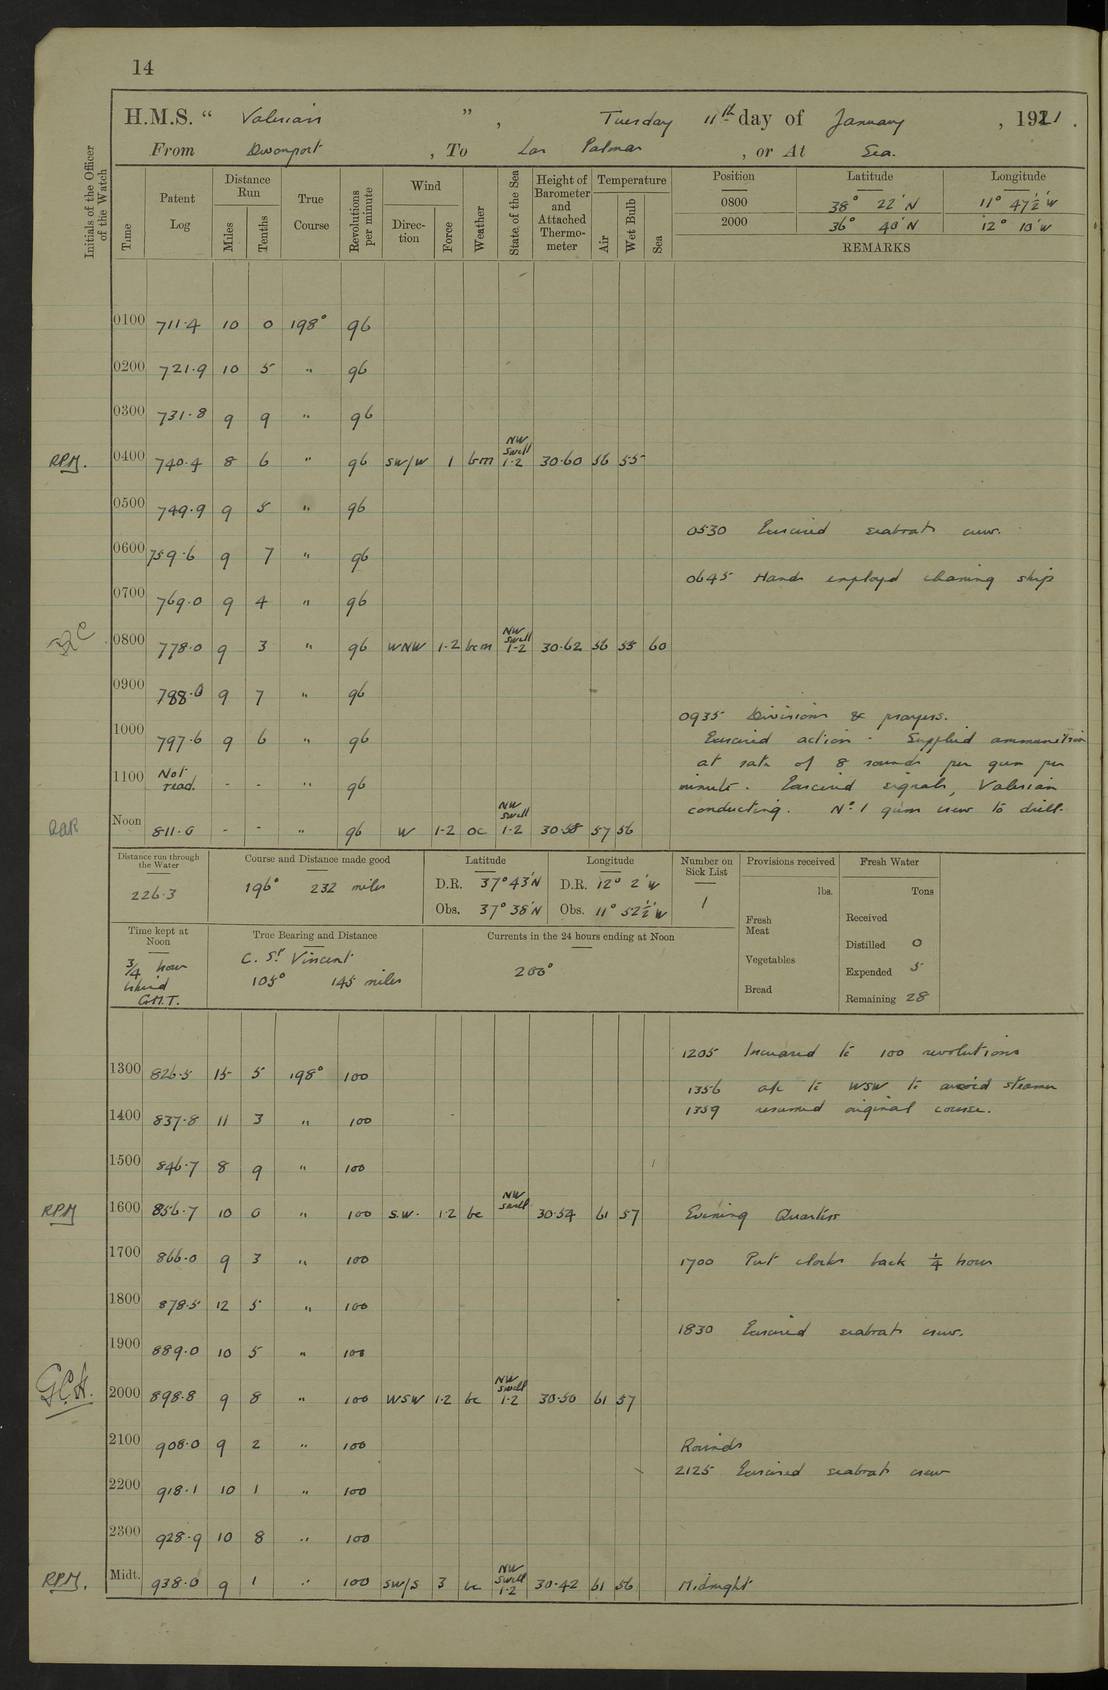 14
H.M.S. “ Valerian ” , Tuesday 11th day of January , 1921 .
From Devonport , To Las Palmas , or At Sea.
Initials of the Officer of the Watch
Time
Patent Log
Distance Run
Miles
Tenths
True Course
Revolutions per minute
Wind
Direc- tion
Force
Weather
State of the Sea
Height of Barometer and Attached Thermo- meter
Temperature
Air
Wet Bulb
Sea
Position Latitude Longitude
0800 38° 22' N 11° 47½' W
2000 36° 40' N 12° 10' W
REMARKS
0100 711.4 10 0 198° 96
0200 721.9 10 5 " 96
0300 731.8 9 9 " 96
RPM. 0400 740.4 8 6 " 96 SW/W 1 bm NW swell 1-2 30.60 56 55
0500 749.9 9 5 " 96
0530 Exercised seaboats crew.
0600 759.6 9 7 " 96
0645 Hands employd cleaning ship
0700 769.0 9 4 " 96
0800 778.0 9 3 " 96 WNW 1-2 bcm NW swell 1-2 30.62 56 55 60
0900 788.0 9 7 " 96
0935 Divisions & prayers.
1000 797.6 9 6 " 96
Exercised action - Supplied ammunition
at rate of 8 rounds per gun per
1100 Not read. - - " 96
minute. Exercised signals, Valerian
conducting. No. 1 guns crew to drill.
RAR Noon 811.0 - - " 96 W 1-2 oc NW swell 1-2 30.58 57 56
Distance run through the Water
226.3
Course and Distance made good
196° 232 miles
Latitude
D.R. 37° 43' N
Obs. 37° 38' N
Longitude
D.R. 12° 2' W
Obs. 11° 52½' W
Number on Sick List
1
Provisions received
lbs.
Fresh Meat
Vegetables
Bread
Fresh Water
Tons
Received
Distilled 0
Expended 5
Remaining 28
Time kept at Noon
3/4 hour behind G.M.T.
True Bearing and Distance
C. St. Vincent
105° 145 miles
Currents in the 24 hours ending at Noon
200°
1205 Increased to 100 revolutions
1300 826.5 15 5 198° 100
1356 a/c to WSW to avoid steamer
1359 resumed original course.
1400 837.8 11 3 " 100
1500 846.7 8 9 " 100
RPM 1600 856.7 10 0 " 100 S.W. 1-2 bc NW swell 30.54 61 57 Evening Quarters
1700 866.0 9 3 " 100 1700 Put clocks back ¼ hour
1800 878.5 12 5 " 100
1830 Exercised seaboats crew.
1900 889.0 10 5 " 100
G.C.H. 2000 898.8 9 8 " 100 WSW 1-2 bc NW swell 1-2 30.50 61 57
2100 908.0 9 2 " 100 Rounds
2125 Exercised seaboats crew
2200 918.1 10 1 " 100
2300 928.9 10 8 " 100
RPM. Midt. 938.0 9 1 " 100 SW/S 3 bc NW swell 1-2 30.42 61 56 Midnight